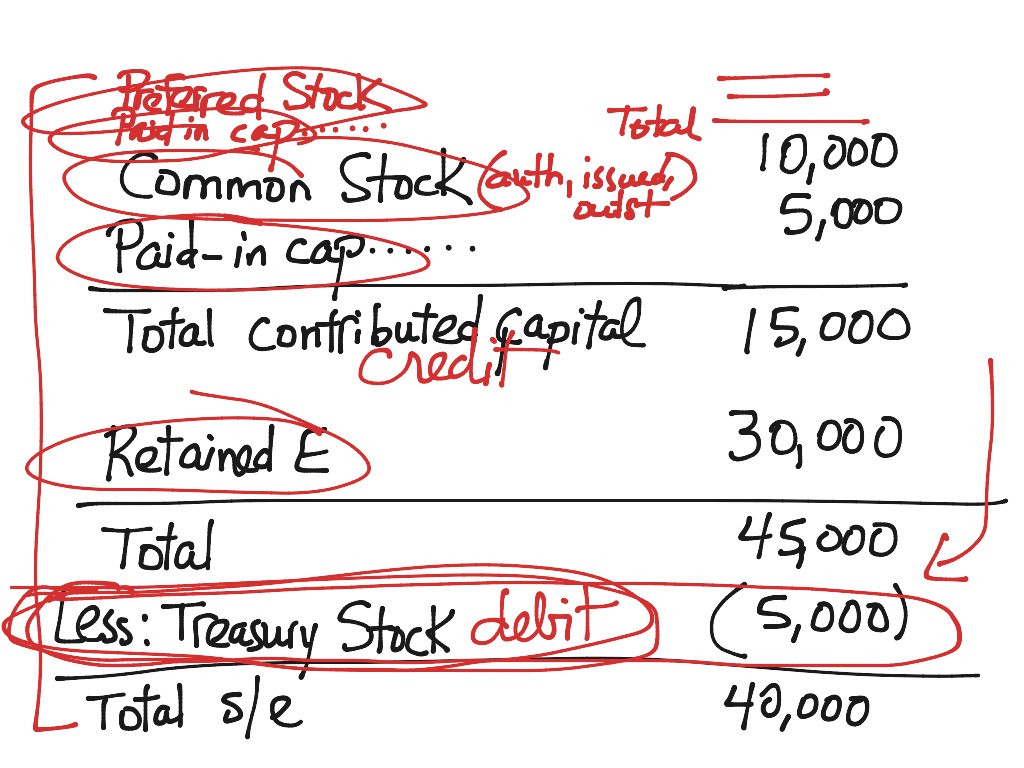 Preferred Stock
Paid in cap......
Total
Common Stock (auth, issued, outst) 10,000
Paid-in cap...... 5,000
Total contributed capital 15,000
credit
Retained E 30,000
Total 45,000
Less: Treasury Stock debit (5,000)
Total s/e 40,000